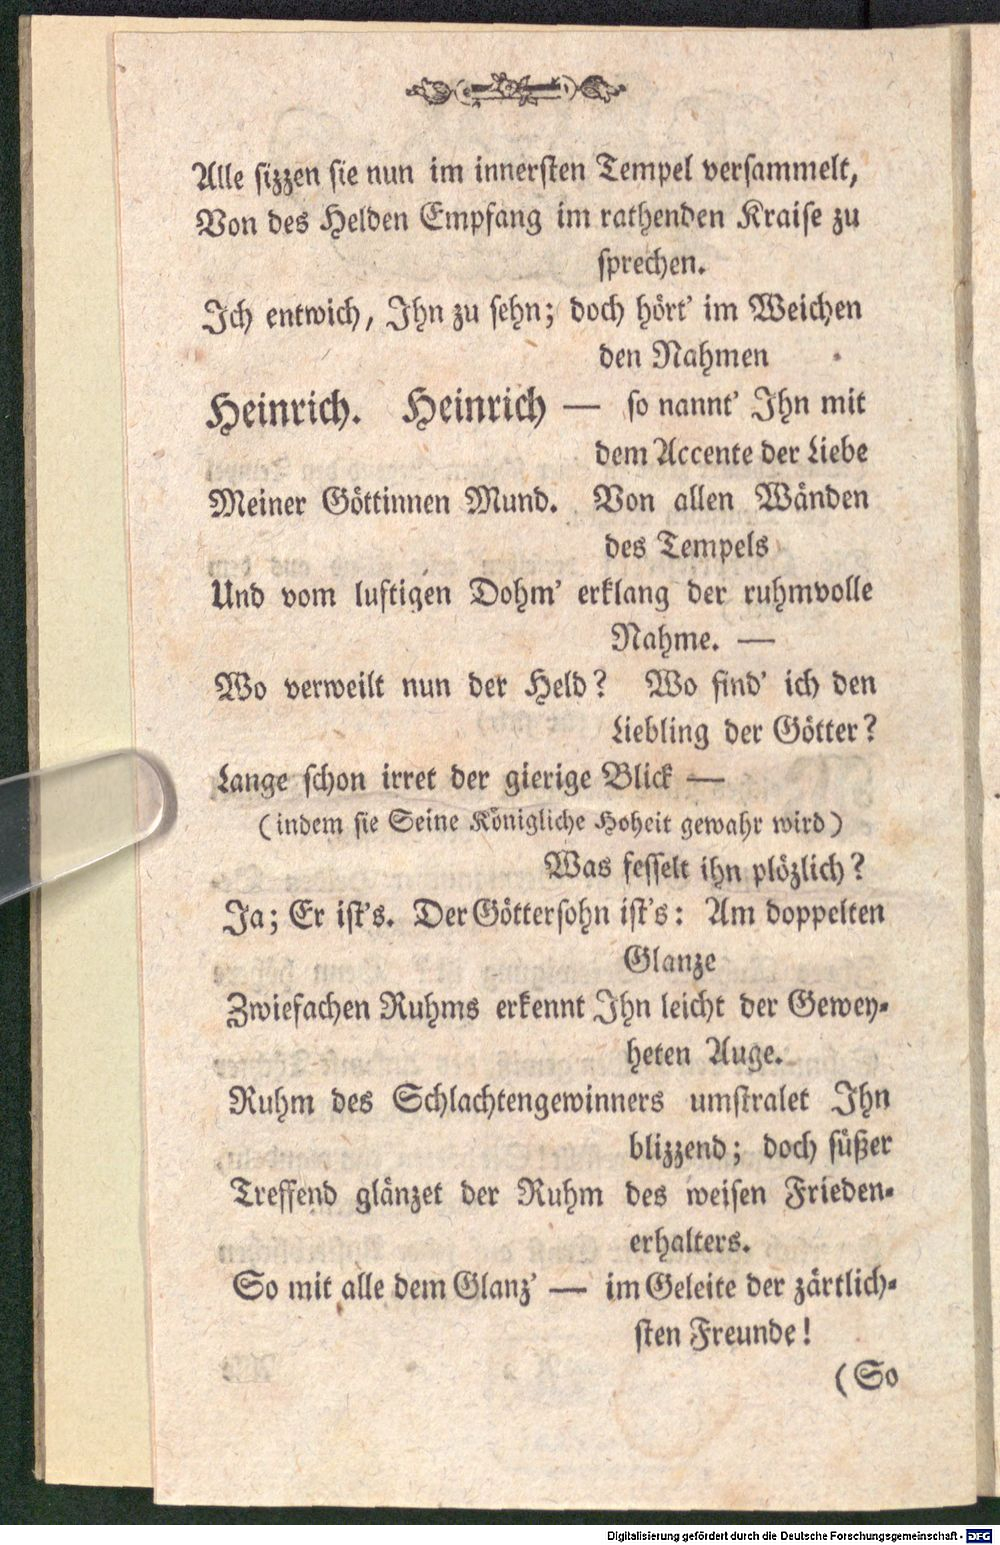 Alle sizzen sie nun im innersten Tempel versammelt,
Von des Helden Empfang im rathenden Kraise zu
sprechen.
Ich entwich, Ihn zu sehn; doch hört' im Weichen
den Nahmen
Heinrich. Heinrich — so nannt' Ihn mit
dem Accente der Liebe
Meiner Göttinnen Mund. Von allen Wänden
des Tempels
Und vom luftigen Dohm' erklang der ruhmvolle
Nahme. —
Wo verweilt nun der Held? Wo find' ich den
Liebling der Götter?
Lange schon irret der gierige Blick —
(indem sie Seine Königliche Hoheit gewahr wird)
Was fesselt ihn plözlich?
Ja; Er ist's. Der Göttersohn ist's: Am doppelten
Glanze
Zwiefachen Ruhms erkennt Ihn leicht der Gewey-
heten Auge.
Ruhm des Schlachtengewinners umstralet Ihn
blizzend; doch süßer
Treffend glänzet der Ruhm des weisen Frieden-
erhalters.
So mit alle dem Glanz' — im Geleite der zärtlich-
sten Freunde!
(So
Digitalisierung gefördert durch die Deutsche Forschungsgemeinschaft - DFG